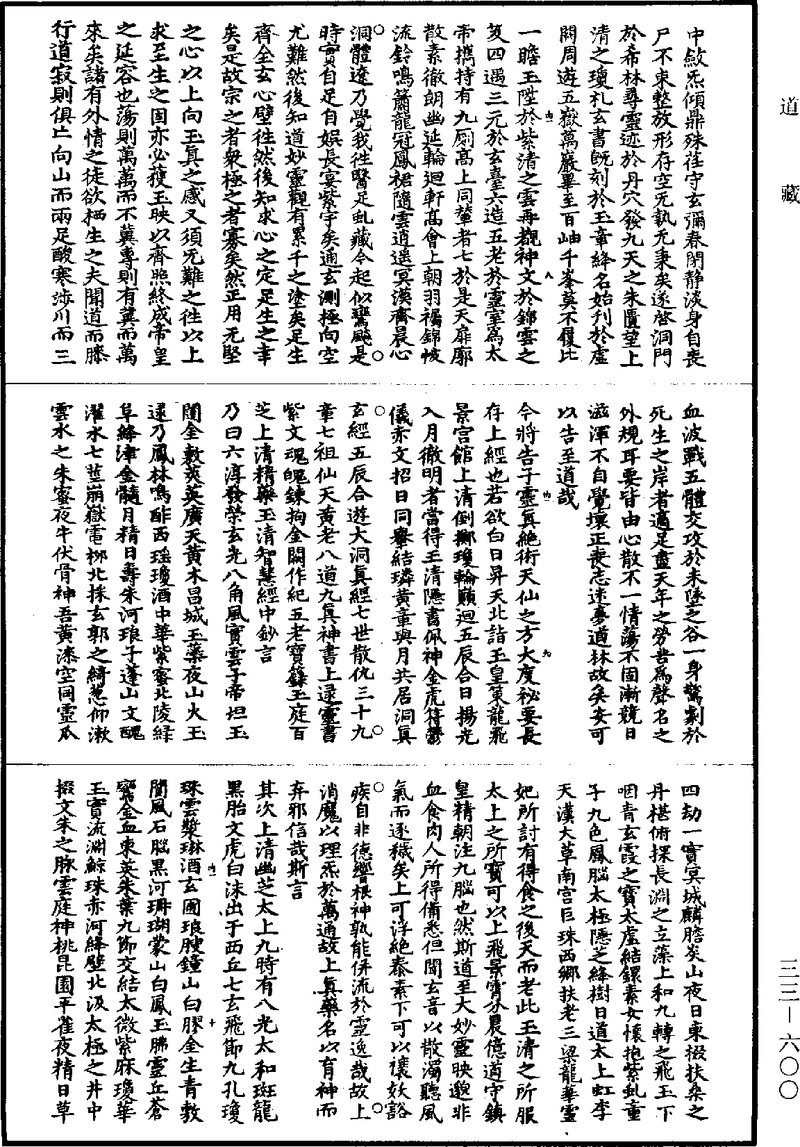 道藏
三三—六〇〇
中斂炁傾鼎殊荏守玄彌春閉靜淡身自喪
尸不束整放形存空无執无秉矣遂啓洞門
於希林尋靈迹於丹穴發九天之朱匱望上
清之瓊札玄書旣刻於玉章絳名始刊於虛
閣周遊五嶽萬巖畢至百岫千峯莫不履比
一瞻玉陛於紫清之雲再觀神文於錦雲之
笈四遇三元於玄臺六造五老於靈室爲太
帝攜持有九廁高上同輦者七於是天扉廓
散素徹朗幽延輪迴軒高會上朝羽襡錦帔
流鈴鳴簫龍冠鳳裙隨雲逍遥冥漠齊晨心
洞體遼乃覺我往醫足虬藏今起似鸞飈是
時實自足自娱長宴紫宇矣通玄測極向空
尤難然後知道妙靈觀有累千之塗矣足生
齊全玄心壁往然後知求心之定足生之幸
矣是故宗之者衆極之者寡矣然正用无堅
之心以上向玉眞之感又須无難之往以上
求至生之固亦必獲玉映以齊照終成帝皇
之延容也蕩則萬萬而不冀專則有冀而萬
來矣諸有外情之徒欲栖生之夫聞道而騰
行道寂則俱亡向山而兩足酸寒涉川而三
血波戰五體交攻於未墜之谷一身驚劇於
死生之岸者適足盡天年之勞苦爲聲名之
外規耳要皆由心散不一情蕩不固漸競日
滋渾不自覺壞正喪志迷夢道林故矣安可
以告至道哉
今將告子靈眞絶術天仙之方大度祕要長
存上經也若欲白日昇天北詣玉皇策龍飛
景宫館上清倒擲瓊輪顚迴五辰合日揚光
入月徹明者當得玉清隱書佩神金虎符鬱
儀赤文招日同轝結璘黄童與月共居洞眞
玄經五辰合遊大洞眞經七世散仇三十九
章七祖仙天黄老八道九眞神書上遝靈書
紫文魂魄鍊拘金闕作紀五老寶籙玉庭百
芝上清精藥玉清智慧經中鈔言
乃曰六淳發榮玄光八角風實雲子帝坦玉
闥金敷莢英廣天黄木昌城玉蘂夜山火玉
逮乃鳳林鳴酢西瑶瓊酒中華紫蜜北陵緑
阜絳津金髓月精日壽朱河琅子蓬山文醜
濯水七莖崩嶽電柳北採玄郭之綺葱仰漱
雲水之朱蜜夜牛伏骨神吾黄漆空同靈瓜
四劫一實冥城麟膽矣山夜日東掇扶桑之
丹椹俯探長淵之玄藻上和九轉之飛玉下
咽青玄霞之寶太虚結鏍素女懷抱紫虬童
子九色鳳腦太極隱芝絳樹日道太上虹李
天漢大草南宫巨珠西鄉扶老三梁龍華靈
妃所討有得食之後天而老此玉清之所服
太上之所寶可以上飛景霄分晨億適守鎮
皇精朝注九腦也然斯道至大妙靈映邈非
血食肉人所得備悉但聞玄音以散濁聽風
氣而逐穢矣上可浮絶泰素下可以禳妖豁
疾自非德響根神孰能併流於靈逸哉故上
消魔以理炁於萬通故上眞藥名以育神而
弃邪信哉斯言
其次上清幽芝太上九時有八光太和斑龍
黑胎文虎白沫出于西丘七玄飛節九孔瓊
珠雲漿琳酒玄圃琅腴鐘山白膠全生青敷
閬風石腦黒河珊瑚蒙山白鳳玉胏靈丘蒼
鸞金血東英朱葉九節交結太微紫麻瓊華
玉實流淵鯨珠赤河絳璧北汲太極之井中
掇文朱之脉雲庭神桃昆園平雀夜精日草